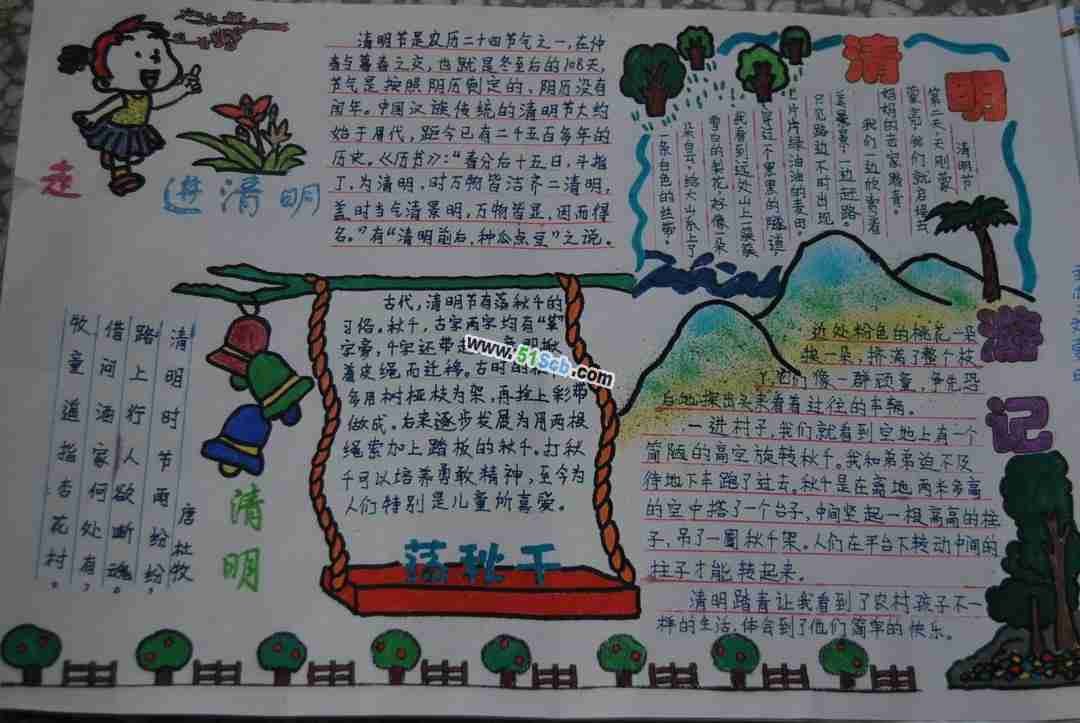 走进清明
清明节是农历二十四节气之一,在仲
春与暮春之交,也就是冬至后的108天,
节气是按照阳历制定的、阴历没有
闰年。中国汉族传统的清明节大约
始于周代,距今已有二千五百多年的
历史。《历书》:"春分后十五日,斗指
丁,为清明,时万物皆洁齐二清明,
盖时当气清景明,万物皆显,因而得
名。"有"清明前后,种瓜点豆"之说。
清明
清明节
第二天天刚蒙
蒙亮,我们就启程去
妈妈的
我们一边欣赏着
美景,一边赶路。
只见路边不时出现
片片绿油油的麦田。
穿过个黑黑的隧道
我看到远处山上一簇簇
雪白的梨花,好像一朵
朵白云,给大山系上了
一条白色的丝带。
游记
近处粉色的桃花一朵
挨一朵,挤满了整个枝
们像一群顽童,争先恐
后地探出头来看着过往的车辆。
一进村子,我们就看到空地上有一个
简陋的高空旋转秋千。我和弟弟迫不及
待地下车跑了过去。秋千是在离地两米多高
的空中搭了一个台子,中间坚起一根高高的柱
子,吊了一圈秋千架。人们在平台下转动中间的
柱子才能转起来。
清明踏青让我看到了农村孩子不一
样的生活,体会到了他们简单的快乐。
古代,清明节有荡秋千的
习俗。秋千,古字两字均有"革"
字旁,千字还带走
着皮绳而迁移。古时的
多用树桠枝为架,再拴上彩带
做成。后来逐步发展为用两根
绳索加上踏板的秋千。打秋
千可以培养勇敢精神,至今为
人们特别是儿童所喜爱。
荡秋千
www.51Scb.com
清明
唐 杜牧
清明时节雨纷纷,
路上行人欲断魂。
借问酒家何处有,
牧童遥指杏花村。